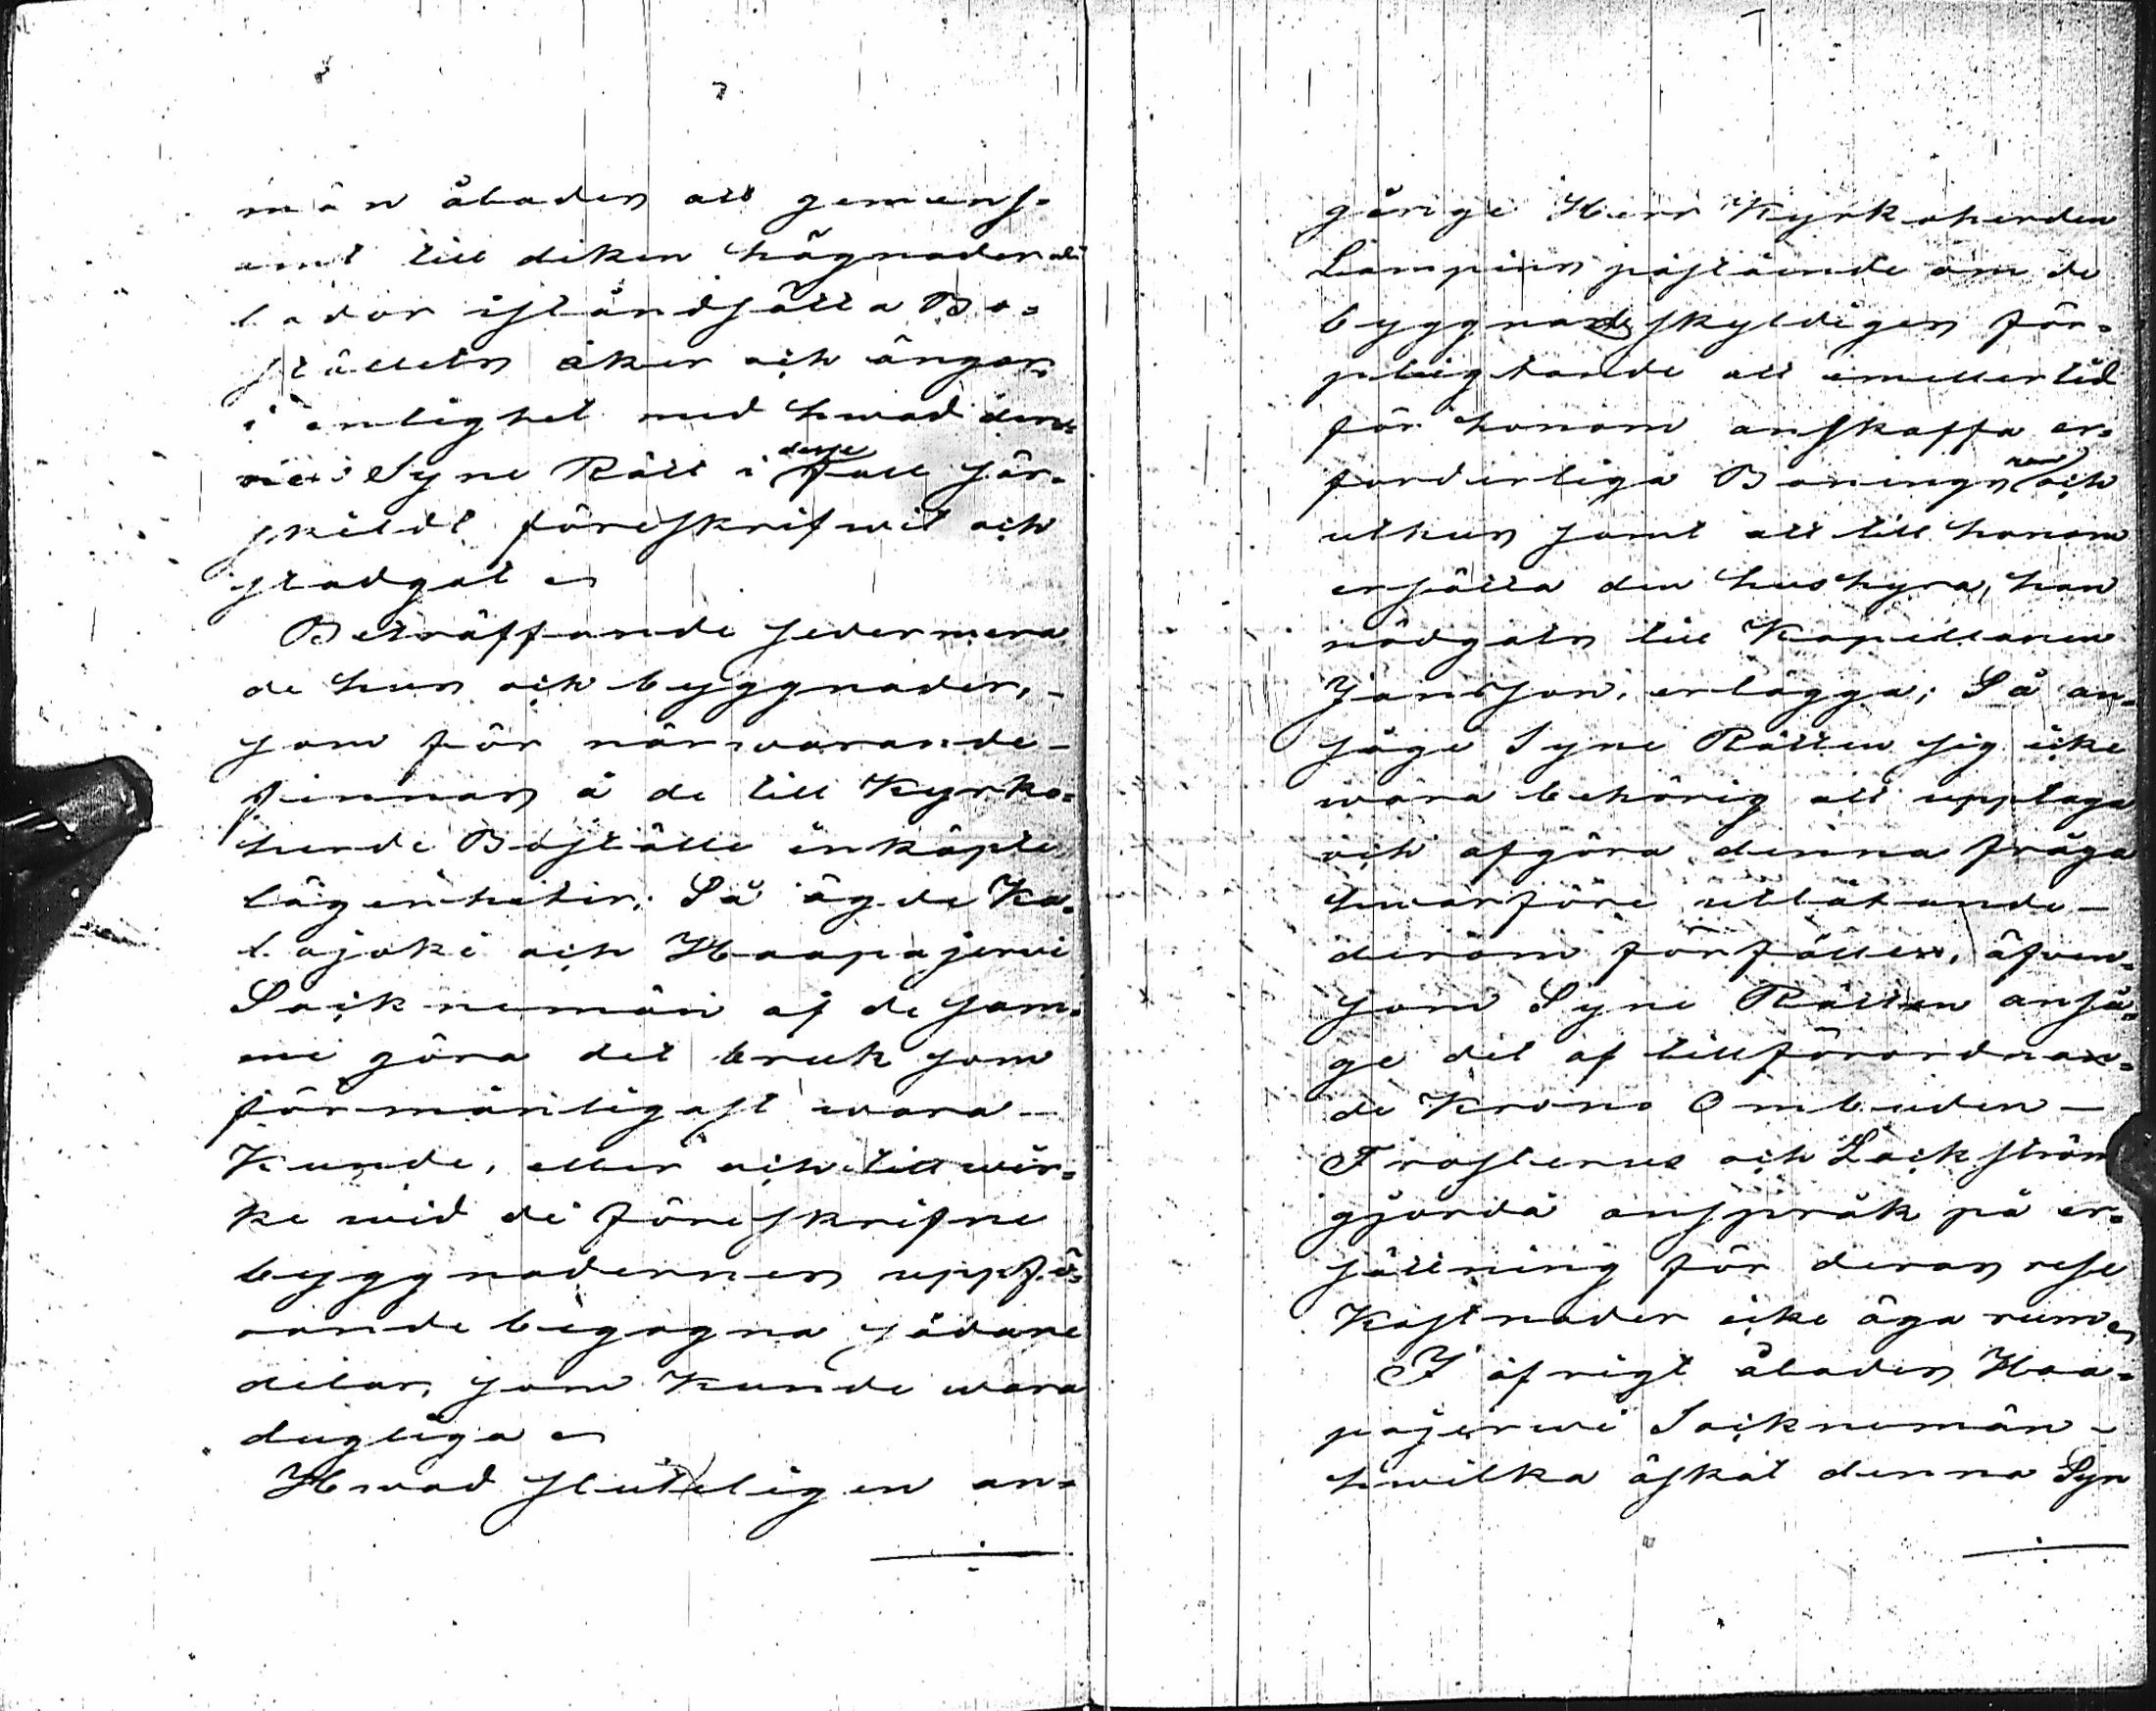 män ålades att gemens=
amt till diken hägnader
lador iståndsätta Bo=
ställets åker och ängar
i enlighet med hwad den=
na Syne Rätt i desse fall sär=
skildt föreskrifwit och
stadgat
Beträffande sedermera
de hus och byggnader, -
som för närwarande -
finnas å de till Kyrko=
herde Boställe inköpte
lägenheter; Så ägde Ka=
lajoki och Haapajerwi
Socknemän af de sam=
me göra det bruk som
förmånligast wara -
Kunde, eller och till wir=
ke wid de föreskrifne
byggnadernes uppfö=
rande begagna sådane
delar, som Kunde wara
dugliga
Hwad sluteligen an=
gårige Herr Kyrkoherden
Lampins påstående om de
byggnadsskyldiges för=
pligtande att emellertid
för honom anskaffa er=
forderliga Bonings rum och
uthus samt att till honom
ersätta den hushyra, han
nödgats till Kapellanen
Jansson, erlägga; Så an=
såge Syne Rätten sig icke
wara behörig att upptaga
och afgöra denna fråga
hwarföre utlåtande -
derom förfäller, äfwen=
som Syne Rätten anså=
ge det af tillförordnan=
de Krono Ombuden -
Frosterus och Lackström
gjorda anspråk på er=
sättning för deras rese
Kostnader icke äga rum
I öfrigt ålades Haa=
pajerwi Socknemän -
hwilka äskat denna Syn